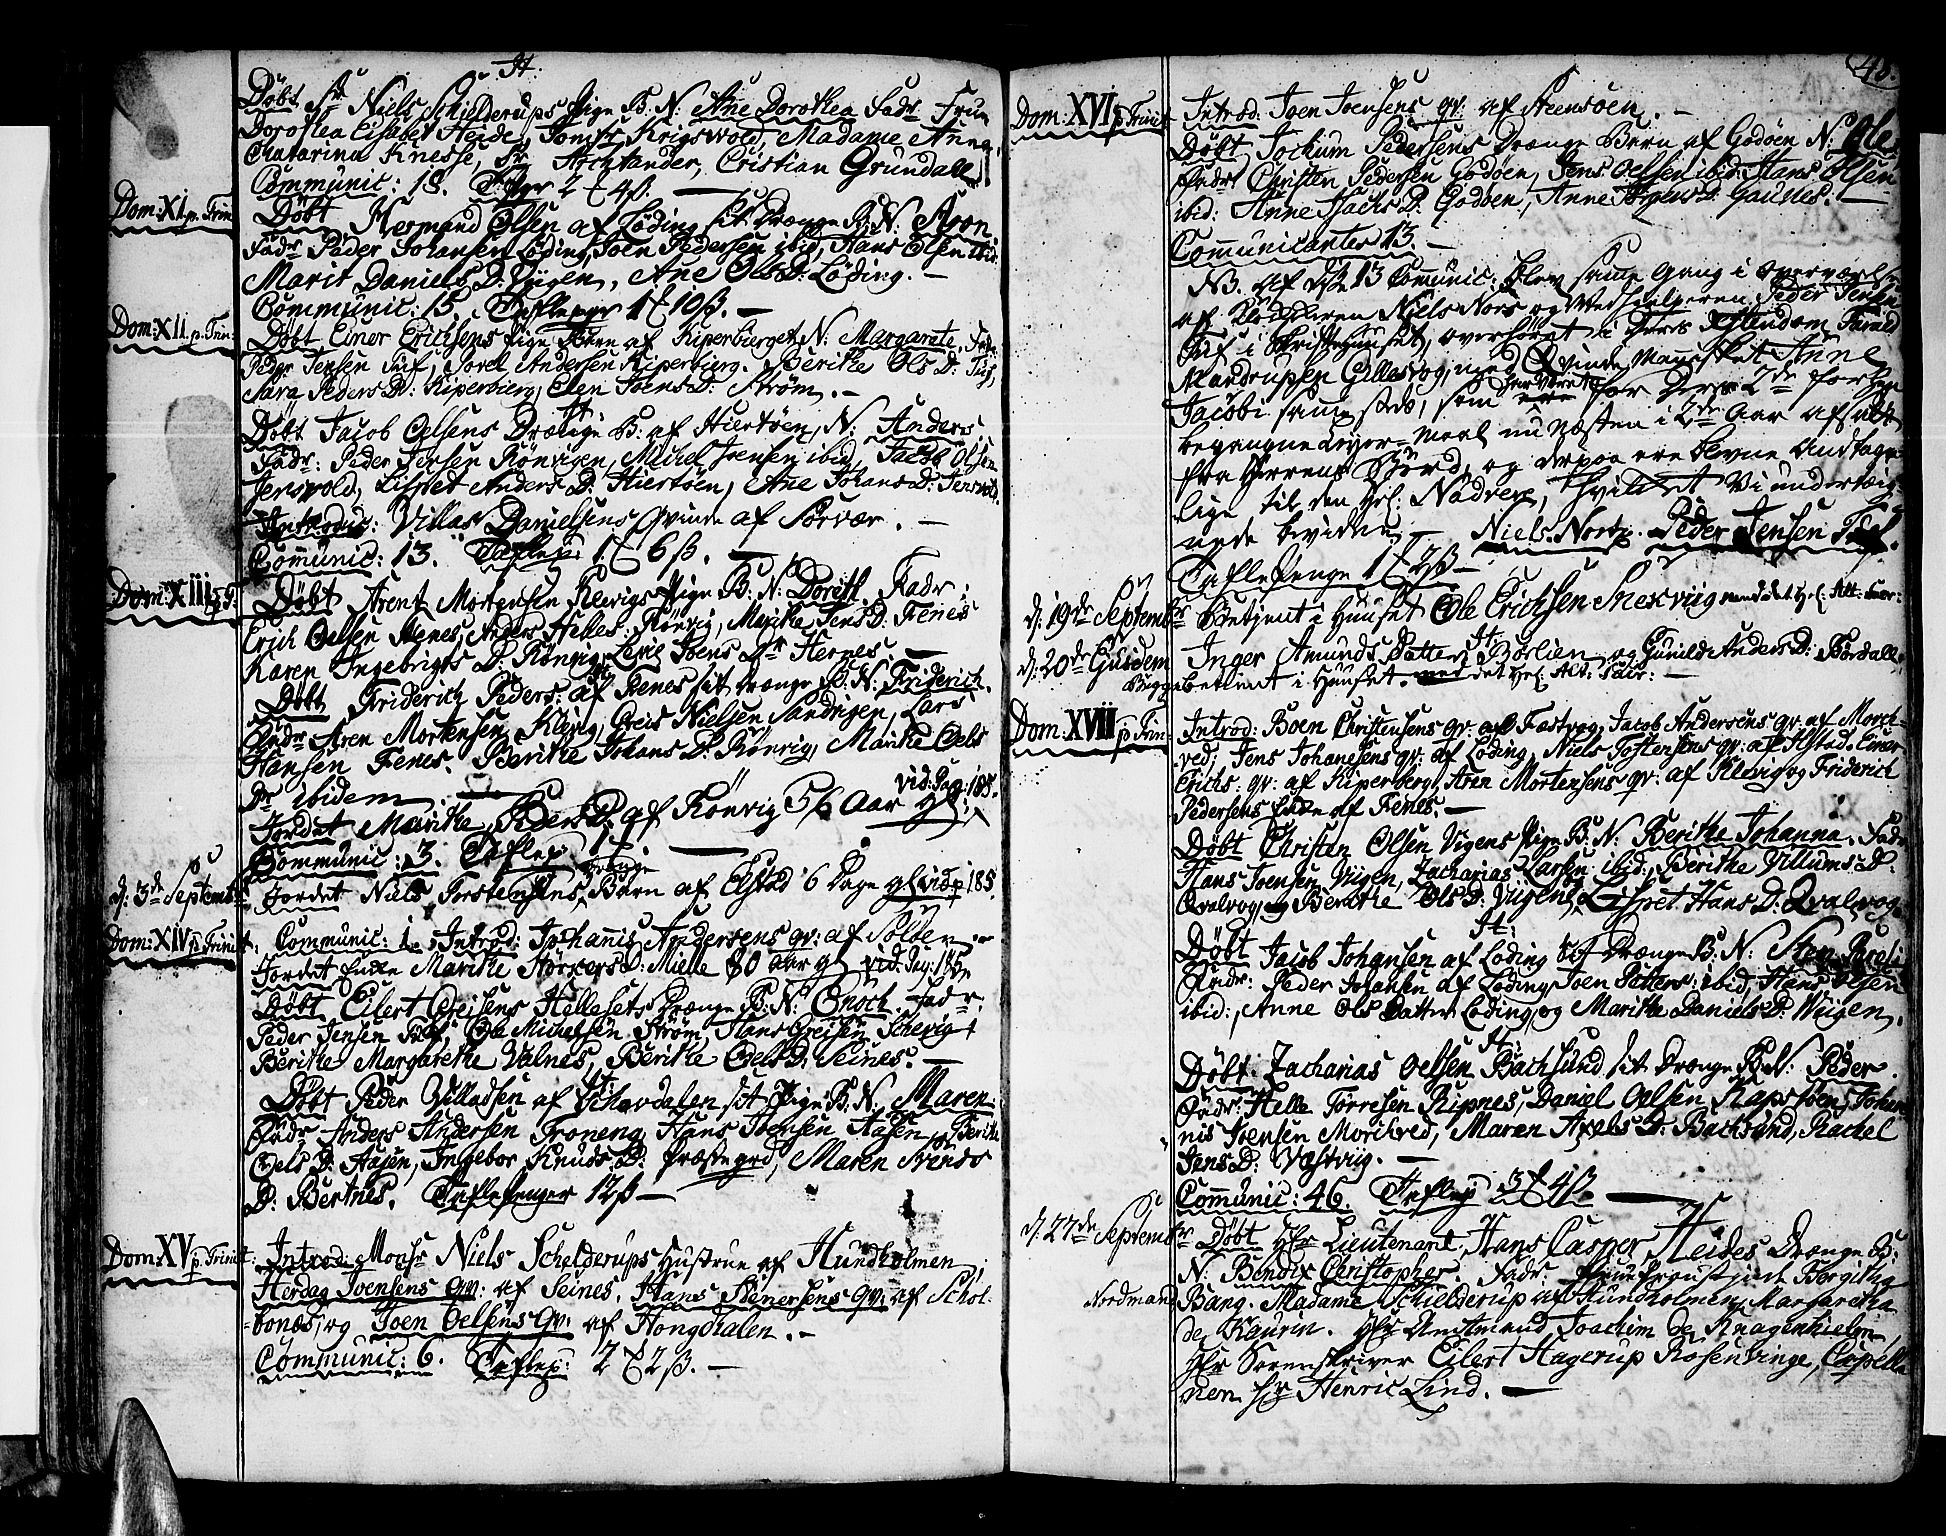 It.
Døbt Sr Niels Schielderups Pige B. N: Ane Dorothea Fadr Frue
Dorothea Elisabet Heide, Jomfr. Krigsvold, Madame Anna
Chatarina Knesse, Sr Archtander, Cristian Grundall
Communic: 18. 2 4ß.
Dom: XI. p. Trin:
Døbt Normand Olsen af Løding sit Drænge B. N: Aron
Fadr Peder Johansen Løding, Joen Pedersen ibid, Hans Olsen ibid:
Marit Daniels D. Vigen, Ane Ols D: Løding.
Communic: 15. Taflepgr 1 10ß.
Dom: XII. p. Trin:
Døbt Einer Erichsens Pige Barn af Kiperbierget N. Margarete, Fadr
Peder Jensen Tuf, Jorel Andersen Kiperbierg. Berithe Ols D: Tuf,
Sara Peders D: Kiperbierg, Elen Joens D: Strøm.
It
Døbt Jacob Oelsens Drænge B: af Hiertøen, N: Anders
Fadr: Peder Jensen Rønvigen, Michel Jensen ibid, Jacob Olsen
Jensvold, Lispet Anders D: Hiertøen, Ane Johans D: Jensvold.
Introduc: Villas Danielsens Qvinde af Sørvær.
Communic: 13. Taflep: 1 6ß.
Dom: XIII
Døbt Arent Mortensen Klevigs Pige B: N: Doreth. Fadr:
Erich Oelsen Nones, Anders Helles: Rønvig, Marithe Jens D: Fenes
Karen Ingebrigts D: Rønvig, Joens Dr Hernes.
Døbt Friderich Peders: af Fenes sit Drænge B: N: Friderich.
Fadr Aren Mortensen Klevig, Greis Nielsen Sandvigen, Lars
Hansen Fenes. Berithe Johans D: Rønvig, Marithe Oels
Dr ibidem. vid: Pag: 185.
Jordet Marithe Peders D: af Rønvig 56 Aar gl:
Communic: 3. Taflep: 1
d: 3de Septembr
Jordet Niels Torstensens Drænge Barn af Elstad 6 Dage gl vid p 185
Dom: XIV p Trinit.
Communic: 1. Introd: Johannis Andersens qv: af Solbe
Jordet Enke Marithe Størkers D: Mielle 80 Aar gl vid: Pag: 185.
Døbt Eilert Greisens Hellesets Drænge B: N: Enoch. Fadr
Peder Jensen Tuf, Ole Michelsen Strøm, Hans Greisen Schevig
Berithe Margarethe Valnes, Berithe Oels D: Seines.
It
Døbt Peder Villadsen af Schavdalen sit Pige B: N. Maren.
Fadr Anders Andersen Troneng, Hans Joensen Aasen, Berithe
Oels D. Aasen, Ingebor Knuds D: Præstegrd, Maren Svends
D: Bertnes. Taflepenger 12ß
Dom XV p. Trinit:
Introd: Monsr Niels Schelderups Hustrue af Hundholmen,
Herdag Joensens qv: af Seines, Hans Stenersens qv: af Schol-
bones, og Joen Oelsens Qv. af Hongdalen.
Communic: 6. Taflep: 2 2ß.
48.
Dom: XVI p Trinit
Introd: Joen Joensens qv: af Steensøen.
Døbt Jochum Pedersens Drænge Barn af Godøen N: Ole
Fadr Christen Pedersen Godøen, Jens Oelsen ibid: Hans Olsen
ibid: Anne Isachs D: Godøen, Anne Jørgens D: Gaudes.
Communicantes 13.
NB. af disse 13 Communic: blev samme Gang i overværelse
af Klocheren Niels Nors og Medhielperen Peder Jensen
Tuf i Skriftehuuset, overhøret i Deres Christendom Farild
Mandrupsen Gillesvog, med Qvinde Mennisket Anne
Jacobi sammesteds, som have været ere for Deres 2de forhen
begangne Leyer-maal nu næsten i 2de Aar afsatte
fra Herrens Bord, og derpaa ere blevne Andtage-
lige til den hel: Nadvere, hvilket Vi undertegn-
nede bevidne Niels Nors. Peder Jensen Tuf.
TaflePenge 1 2ß
d: 19de Septembr
Betjent i Huuset Ole Erichsen Snexviig med det hel: Alt: Sacr:
d: 20de Ejusdem
It
Inger Amunds Datter Børlien og Gunild Anders D: Børdall,
begge betient i Huuset. med det hel: Alt: Sacr:
Dom XVII p: Trin:
Introd: Boen Christensens qv: af Fastvog, Jacob Andersens qv: af Morch-
ved, Jens Johanesens qv: af Løding, Niels Tostensens qv: af Ilstad. Einer
Erichs: qv: af Kiperberg, Aren Mortensens qv: af Klevig og Friderich
Pedersens Enke af Fenes.
Døbt Christen Olsen Vigens Pige B: N: Berithe Johanna. Fadr
Hans Joensen Viigen, Zacharias Larsen ibid, Berithe Villums D:
Qvalvog, og Berithe Ols D: Viigen, Lispet Hans D: Qvalvog.
It:
Døbt Jacob Johansen af Løding sit Drænge B: N: Sten
Fadr: Peder Johansen af Løding Joen Petters: ibid, Hans Olsen
ibid:, Anne Ols Datter Løding, og Marithe Daniels D: Wiigen.
It:
Døbt Zacharias Oelsen Bachsund sit Drænge B: N: Peder.
Fadr: Helle Torresen Ripnes, Daniel Oelsen Kapstøen, Johan-
nis Joensen Morchved, Maren Axels D: Bachsund, Rachel
Jens D: Vastviig.
Communic: 46. Taflep 3 4ß.
d: 27de Septembr
Døbt Hr Lieutenant Hans Casper Heides Drænge B:
N: Bendix Christopher. Fadr: Borgitha
Bang. Madame Schielderup af Hundholmen, Margaretha
Nordmand
de Kaurin. Hr Amtmand Joachim de Knagenhielm,
Hr Sorenskriver Eilert Hagerup Rosenvinge, Capella-
nen hr Henric Lind.